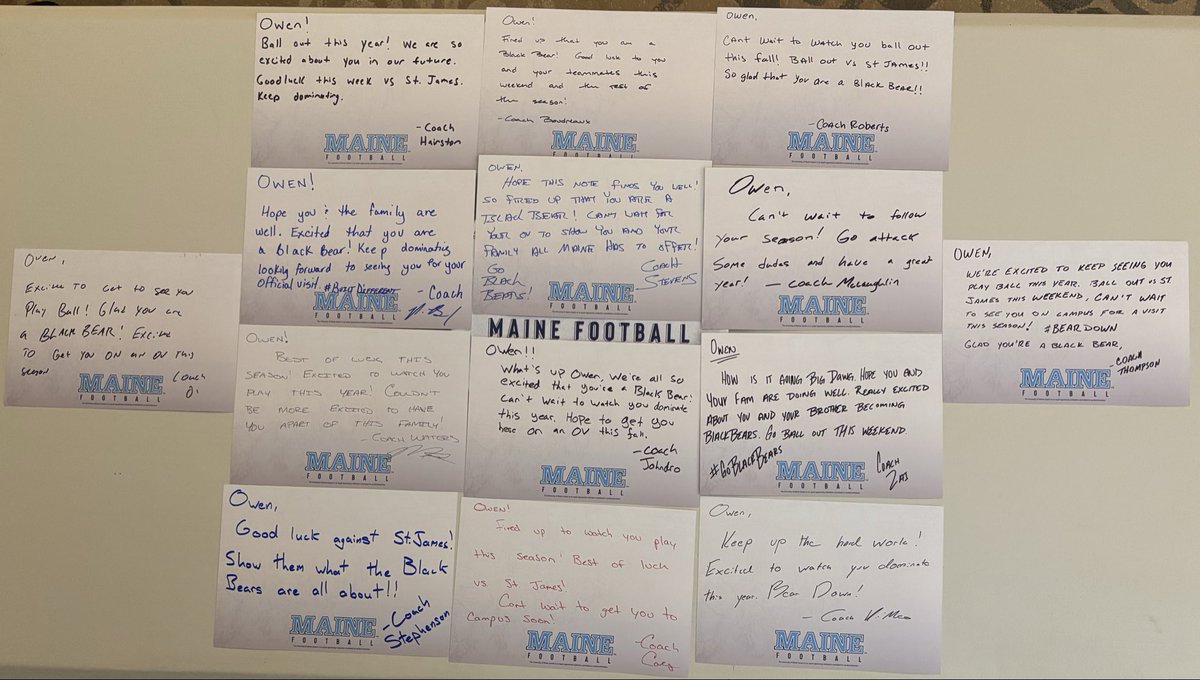 Owen!
Ball out this year! We are so
excited about you in our future.
Goodluck this week vs St. James.
Keep dominating.
-Coach
Hairston
MAINE
FOOTBALL
Owen!
Fired up that you are a
Black Bear! Good luck to you
and your teammates this
weekend and the rest of
the season!
-Coach Boudreaux
MAINE
FOOTBALL
Owen,
Can't wait to watch you ball out
this fall! Ball out vs St James!!
So glad that you are a Black Bear!!
-Coach Roberts
MAINE
FOOTBALL
OWEN!
Hope you & the family are
well. Excited that you are
a Black Bear! Keep dominating
looking forward to seeing you for your
official visit. #Built Different
-Coach
MAINE
FOOTBALL
OWEN,
HOPE THIS NOTE FINDS YOU WELL!
SO FIRED UP THAT YOU ARE A
BLACK BEAR! CAN'T WAIT FOR
YOUR OV TO SHOW YOU AND YOUR
FAMILY ALL MAINE HAS TO OFFER!
GO
BLACK
BEARS!
COACH
STEVENS
MAINE FOOTBALL
Owen,
Can't wait to follow
your season! Go attack
some dudes and have a great
year! - Coach McLaughlin
MAINE
FOOTBALL
Owen,
Excited to get to see you
Play Ball! Glad you are
a BLACK BEAR! Excited
To get you on an OV this
season
Coach
O.
MAINE
FOOTBALL
OWEN,
WE'RE EXCITED TO KEEP SEEING YOU
PLAY BALL THIS YEAR. BALL OUT VS ST.
JAMES THIS WEEKEND, CAN'T WAIT
TO SEE YOU ON CAMPUS FOR A VISIT
THIS SEASON! #BEARDOWN
GLAD YOU'RE A BLACK BEAR,
-COACH
THOMPSON
MAINE
FOOTBALL
OWEN!
BEST OF LUCK THIS
SEASON! EXCITED TO WATCH YOU
PLAY THIS YEAR! COULDN'T
BE MORE EXCITED TO HAVE
YOU APART OF THIS FAMILY!
-COACH WATERS
MAINE
FOOTBALL
Owen!!
What's up Owen, We're all so
excited that you're a Black Bear!
Can't wait to watch you dominate
this year. Hope to get you
here on an OV this fall.
-Coach
Johndro
MAINE
FOOTBALL
OWEN
HOW IS IT GOING BIG DAWG. HOPE YOU AND
YOUR FAM ARE DOING WELL. REALLY EXCITED
ABOUT YOU AND YOUR BROTHER BECOMING
BLACKBEARS. GO BALL OUT THIS WEEKEND.
#GOBLACKBEARS
COACH
ZAJ
MAINE
FOOTBALL
Owen,
Good luck against St. James!
Show them what the Black
Bears are all about!!
-Coach
Stephenson
MAINE
FOOTBALL
OWEN!
Fired up to watch you play
this season! Best of luck
vs. St James!
Cant wait to get you to
campus soon!
-Coach
MAINE
FOOTBALL
Owen,
Keep up the hard work!
Excited to watch you dominate
this year. Bear Down!
- Coach
MAINE
FOOTBALL